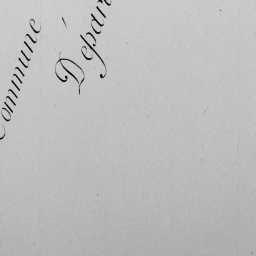 Commune
Dépar